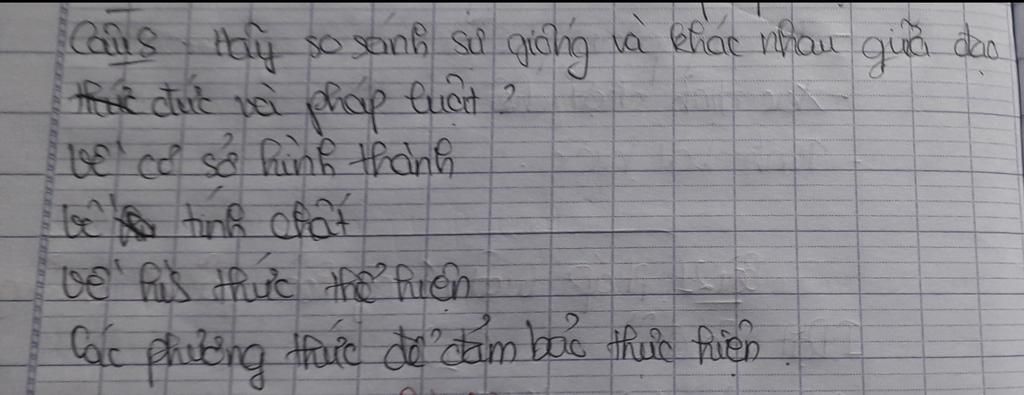 Câu 5 Hãy so sánh sự giống và khác nhau giữa đạo
đức và pháp luật ?
Về cơ sở hình thành
Về tính chất
Về thức thể hiện
Các phương thức để đảm bảo thực hiện.